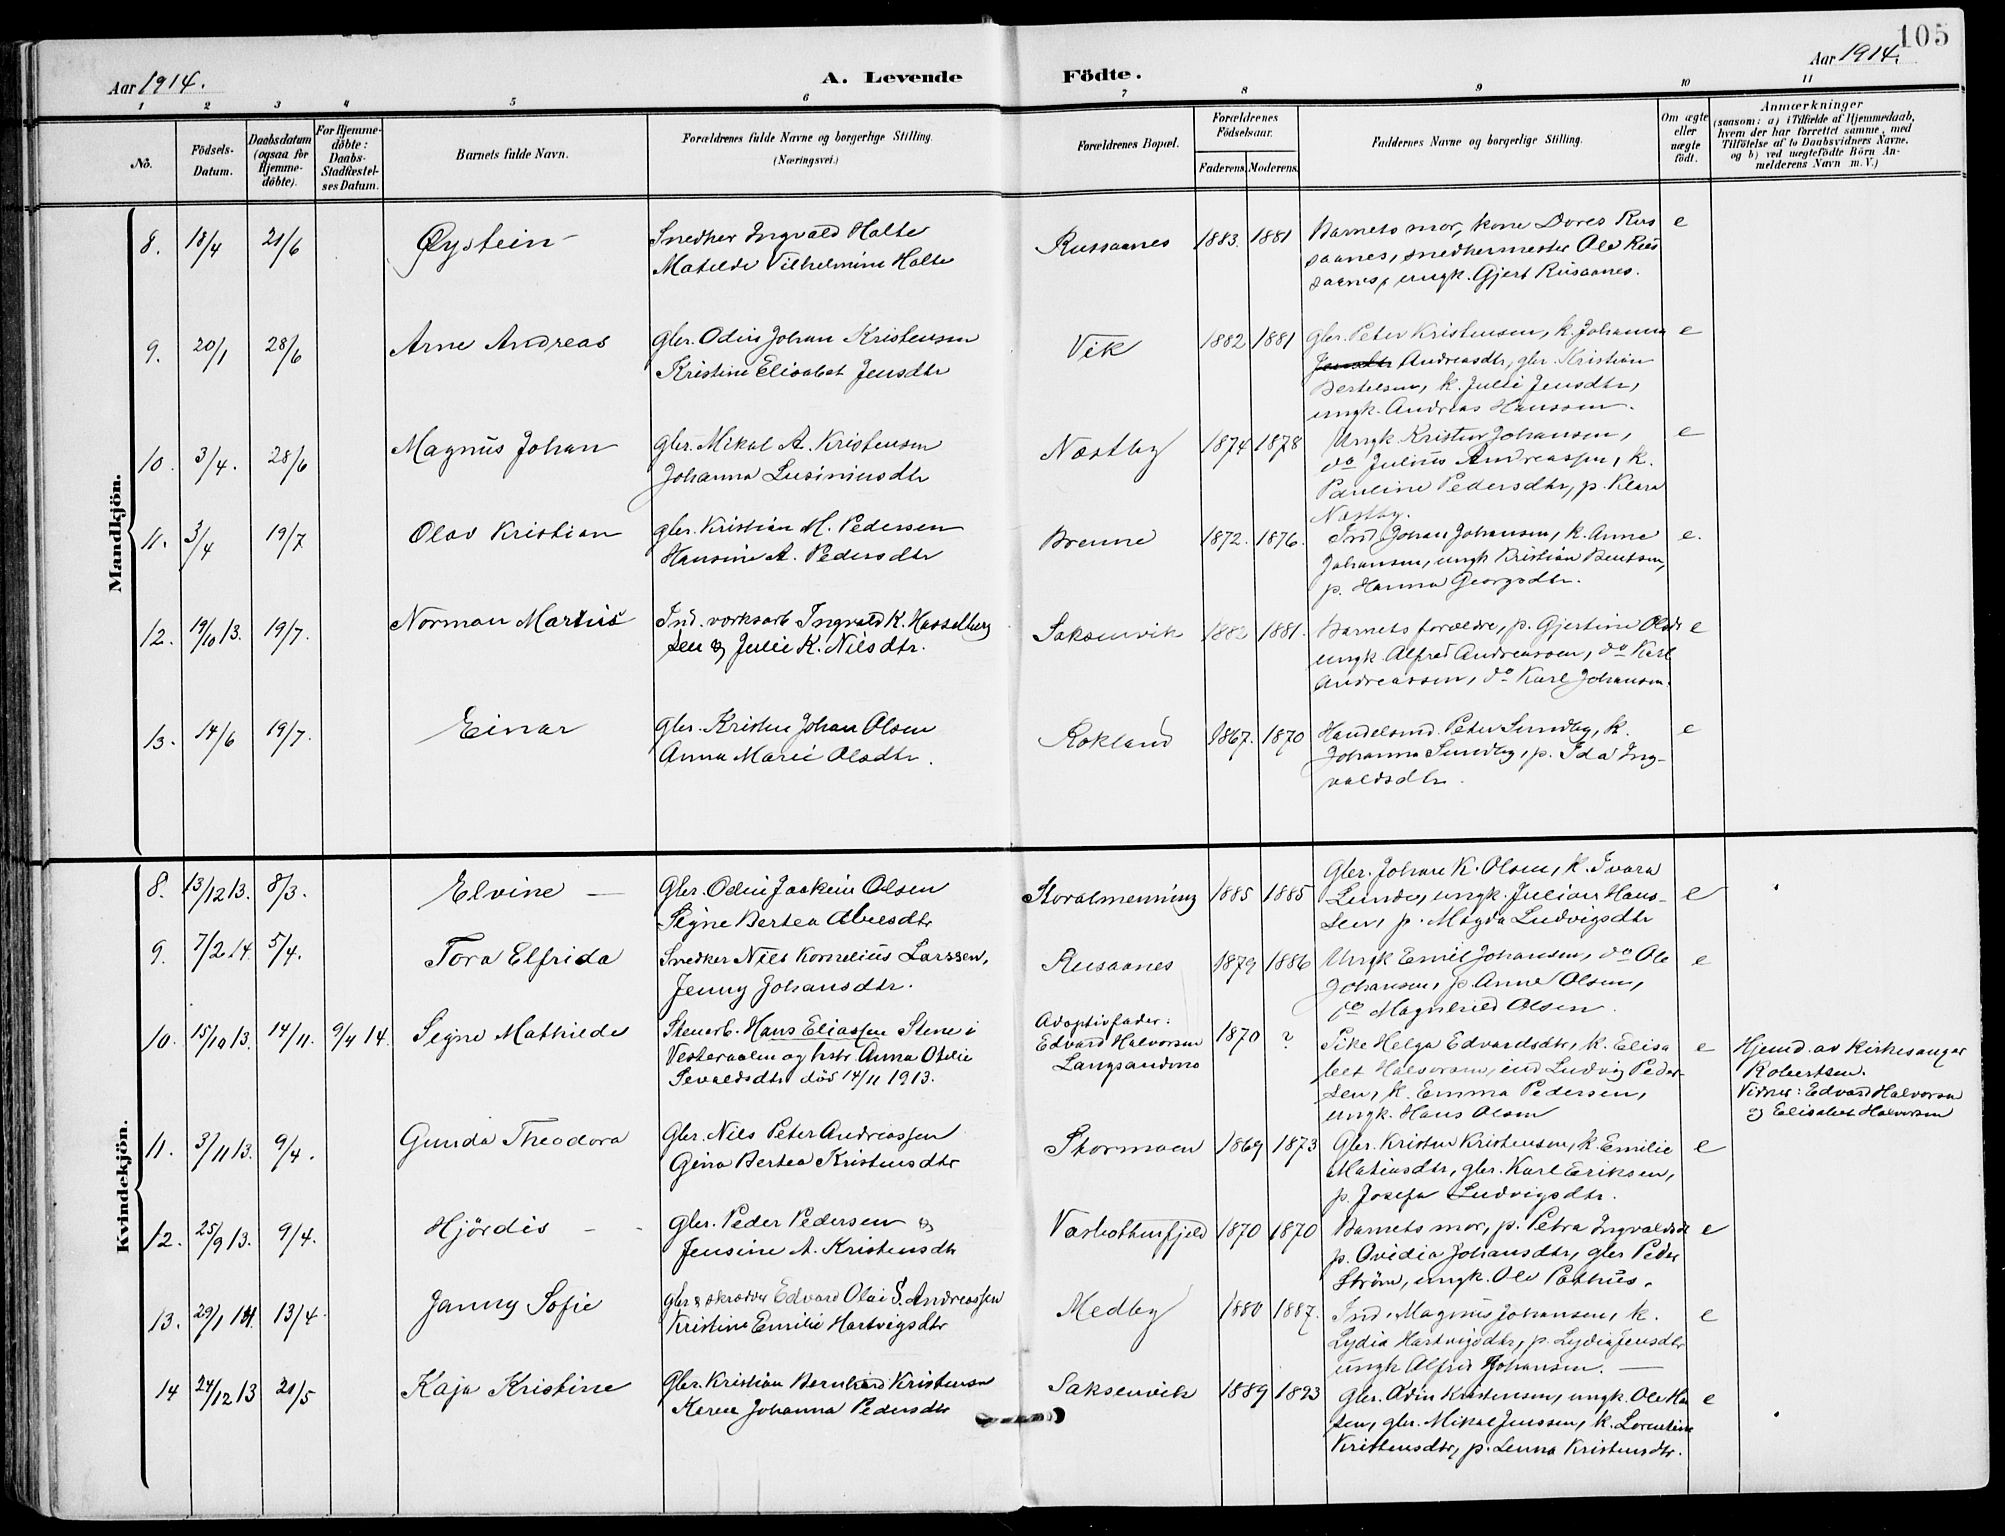 105
Aar 1914. A. Levende Födte. Aar 1914.
1 2 3 4 5 6 7 8 9 10 11
No. Födsels-Datum. Daabsdatum (ogsaa for Hjemme-döbte). For Hjemme-döbte: Daabs-Stadfæstel-ses Datum. Barnets fulde Navn. Forældrenes fulde Navne og borgerlige Stilling. (Næringsvei.) Forældrenes Bopæl. Forældrenes Födselsaar. Faderens. Moderens. Faddernes Navne og borgerlige Stilling. Om ægte eller uægte födt. Anmærkninger (saasom: a) i Tilfælde af Hjemmedaab, hvem der har forrettet samme, med Tilföielse af to Daabsvidners Navne, og b) ved uægtefödte Börn An-melderens Navn m. V.)
Mandkjön.
8. 18/4 21/6 Øystein - Snedker Ingvald Halte Russaanes 1883. 1881 Barnets mor, kone Dores Rus e
Matilde Vilhelmine Halte saanes, snedkermester Ole Rus
saanes, ungk. Gjert Rusaanes.
9. 20/1 28/6 Arne Andreas gbr. Odin Johan Kristensen Vik 1882 1881 gbr. Peter Kristensen, k. Johanna e
Kristine Elisabet Jensdtr Andreasdtr, gbr. Kristian
Bertelsen, k. Julie Jensdtr,
ungk. Andreas Hanssen.
10. 3/4. 28/6 Magnus Johan gbr. Mikal A. Kristensen Næstby 1874 1878 Ungk Kristen Johansen, e
Johanna Lusiniusdtr do Julius Andreassen, k.
Pauline Pedersdtr, p. Klara
Næstby.
11. 3/4 19/7 Olav Kristian gbr. Kristian M. Pedersen Brenne 1872. 1876. Ind. Johan Johansen, k. Anne e.
Hansine A. Pedersdtr Johansen, ungk Kristian Bentsen,
p. Hanna Georgsdtr.
12. 19/10 13. 19/7. Norman Martin Ind. verksarb Ingvald K. Hasselberg Saksenvik 1882 1881. Barnets forældre, p. Gjertine Olsdr e
sen & Julie K. Nilsdtr. ungk. Alfred Andreassen, do Karl
Andreassen, do Karl Johansen.
13. 14/6 19/7. Einar gbr. Kristen Johan Olsen Rokland 1867. 1870 Handelsmd. Peter Sundby, k. e
Anna Marie Olsdtr. Johanna Sundby, p. Ida Ing-
valdsdtr.
Kvindekjön.
8. 13/12 13. 8/3. Elvine - Gbr. Odin Joakim Olsen Storalmenning 1885 1885 Gbr. Johan K. Olsen, k. Ivara e
Signe Bertea Abelsdtr Lunde, ungk. Julian Hans-
sen, p. Magda Ludvigsdtr
9. 7/2 14. 5/4. Tora Elfrida Snedker Nils Kornelius Larssen, Rusaanes 1879 1886 Ungk Emil Johansen, do Ole e
Jenny Johansdtr. Johansen, p. Anne Olsen,
do Magnhild Olsen.
10. 15/10 13. 14/11. 9/4 14. Signe Mathilde Stenarb. Hans Eliassen Stene i Adoptivfader: Edvard Halvorsen Langsandmo 1870 ? Pike Helga Edvardsdtr, k. Elisa e Hjemd. av Kirkesanger
Vesteraalen og hstr. Anna Otelie bet Halvorsen, ind Ludvig Peder- Robertsen.
Sevaldsdtr död 14/11 1913. sen, k. Emma Pedersen, Vidner: Edvard Halvorsen
ungk. Hans Olsen og Elisabet Halvorsen
11. 3/11 13. 9/4. Gunda Theodora Gbr. Nils Peter Andreassen Stormoen 1869 1873 Gbr. Kristen Kristensen, k. Emilie e
Gina Bertea Kristensdtr Matiasdtr, gbr. Karl Eriksen,
p. Josefa Ludvigsdtr.
12. 25/9 13. 9/4. Hjördis - Gbr. Peder Pedersen & 1870 1870 Barnets mor, p. Petra Ingvaldsd e
Jensine A. Kristensdtr p. Ovidia Johansdtr, gbr Peder
Ström, ungk. Ole Pothus.
13. 29/1 14. 13/4. Janny Sofie gbr & skrædder Edvard Olai S. Andreassen Medby 1880 1887. Ind. Magnus Johansen, k. e
Kristine Emilie Hartvigsdtr Lydia Hartvigsdtr, p. Lydia Jensdtr
ungk Alfred Johansen.
14 24/12 13 21/5 Kaja Kristine Gbr. Kristian Bernhard Kristensen Saksenvik 1889 1893 Gbr. Odin Kristensen, ungk. Ole Han e
Karen Johanna Pedersdtr sen, gbr. Mikal Jenssen, k. Lorentine
Kristensdtr, p. Lenna Kristensdtr.